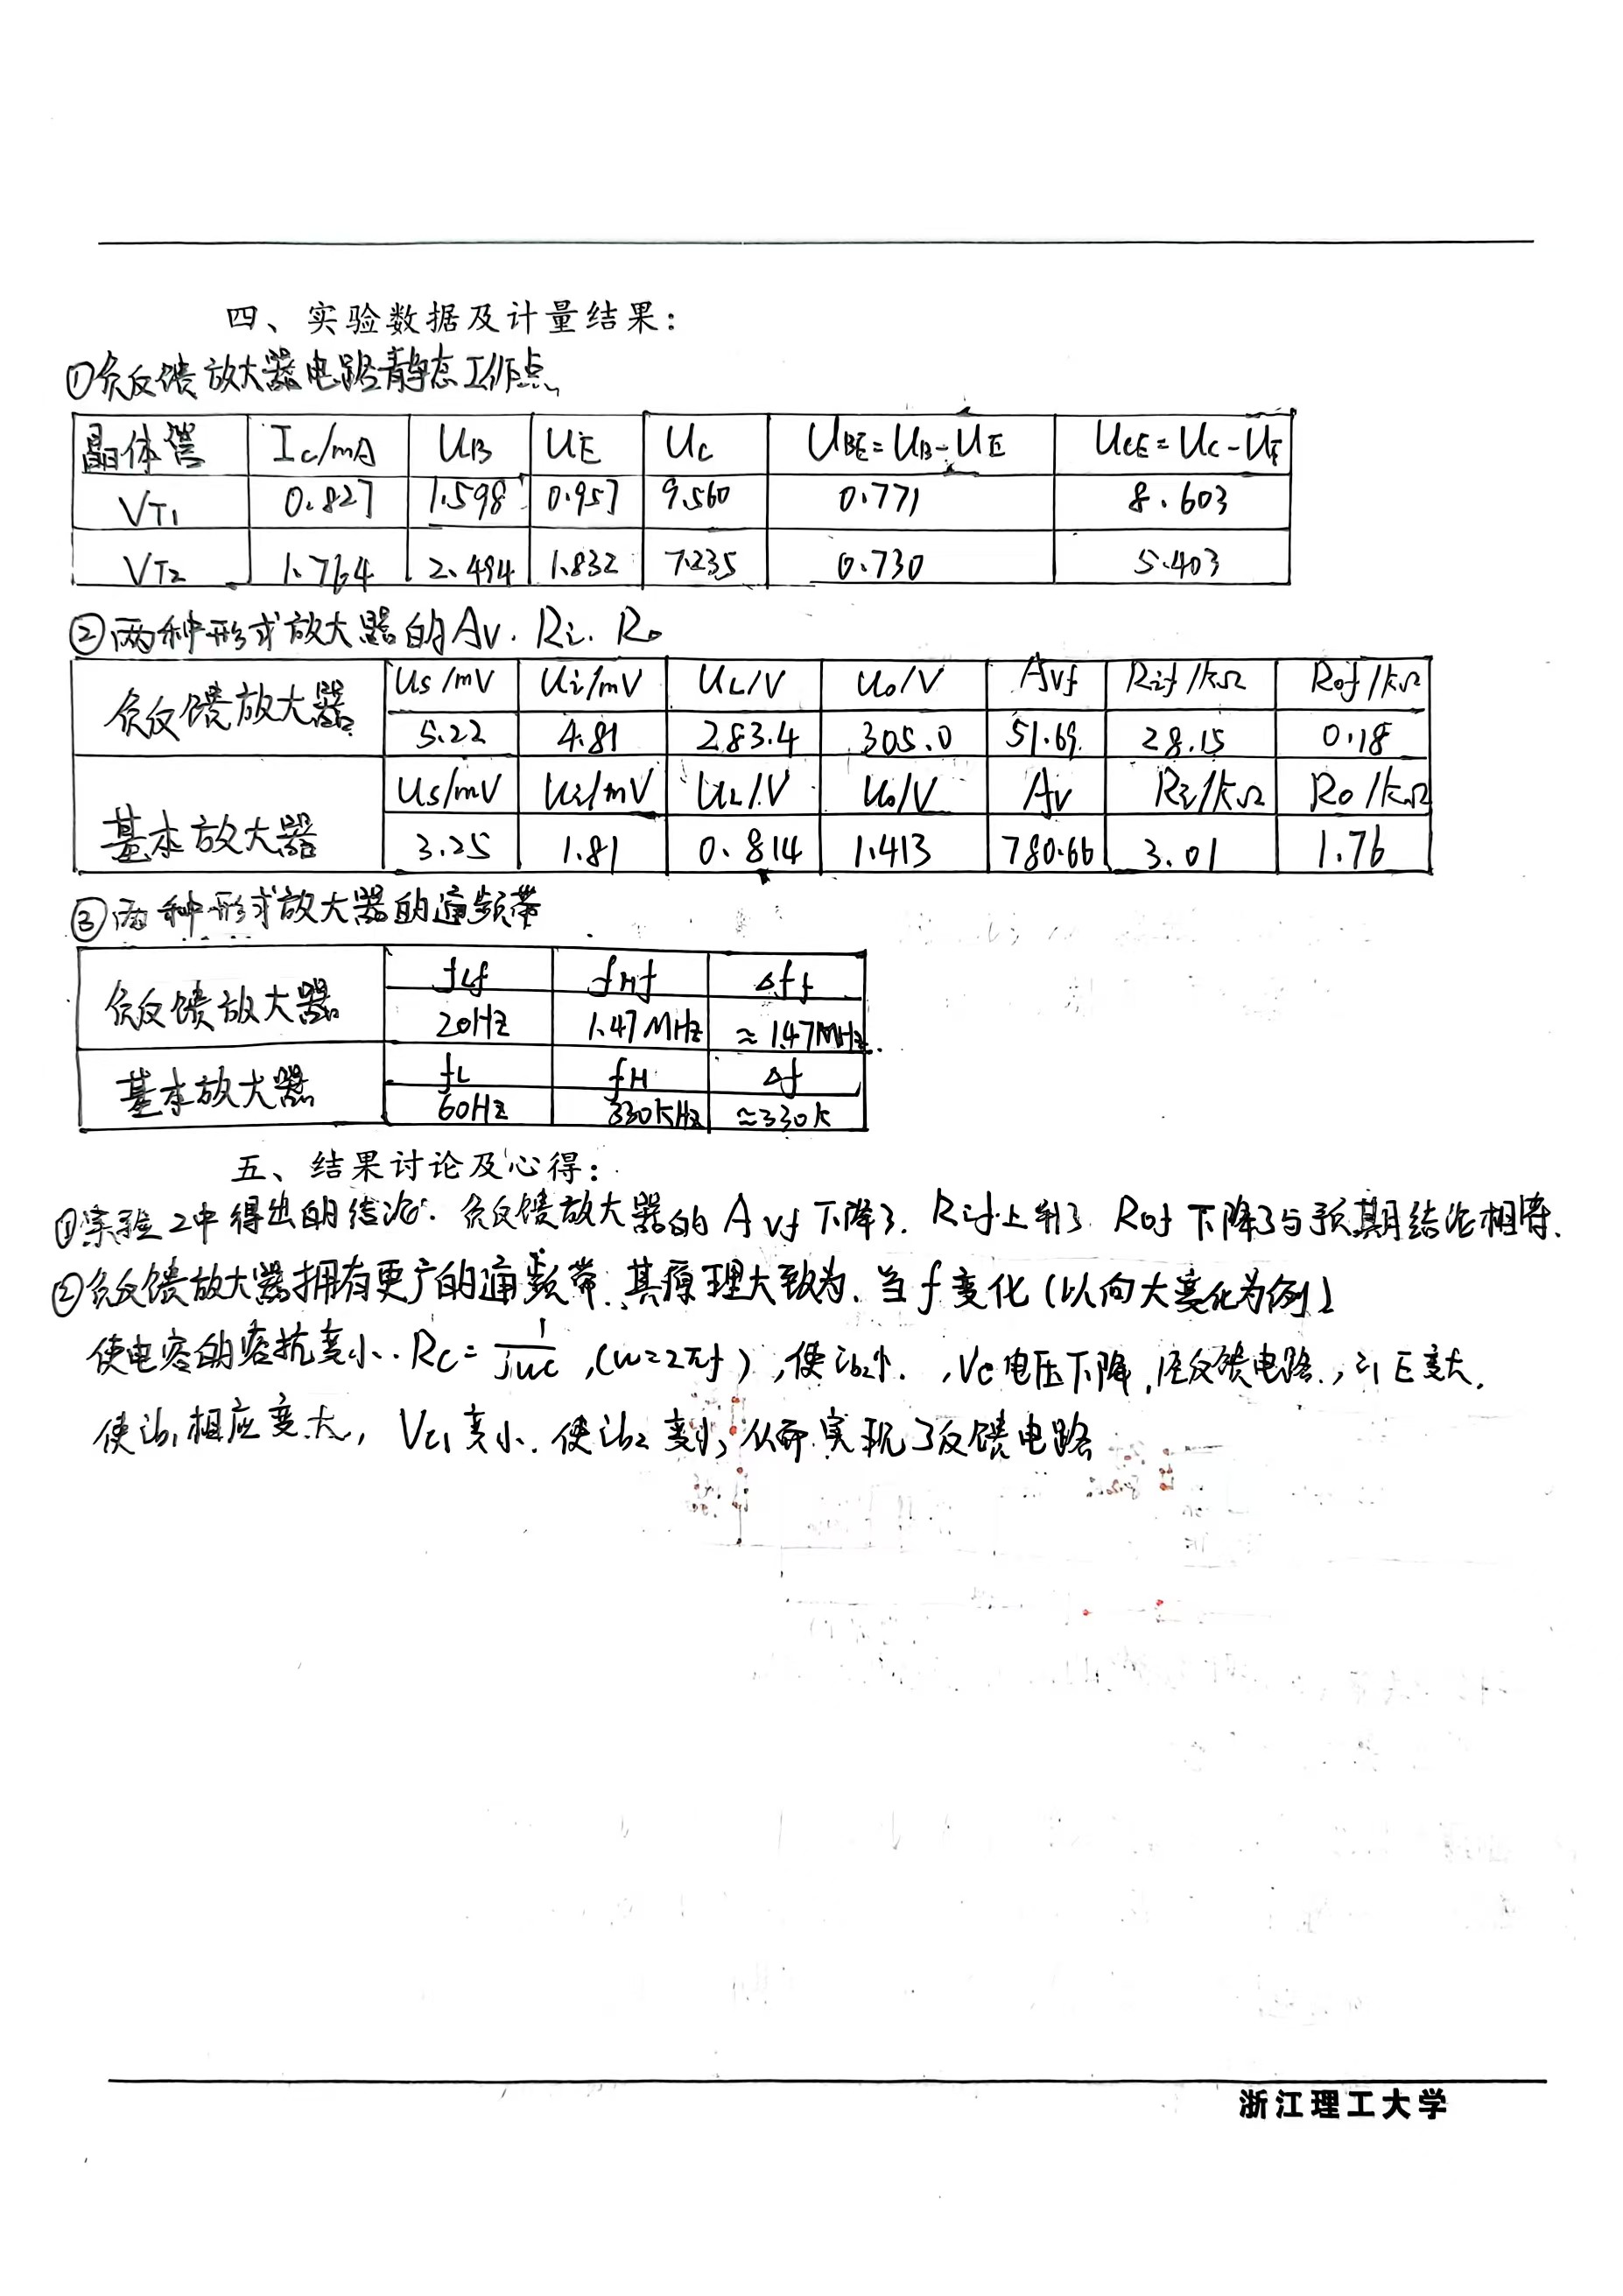 四、实验数据及计量结果：
①负反馈放大器电路静态工作点
晶体管 Ic/mA UB UE Uc UBE=UB-UE UCE=UC-UE
VT1 0.827 1.598 0.957 9.560 0.771 8.603
VT2 1.764 2.494 1.832 7.235 0.730 5.403
②两种形式放大器的Av.Ri.Ro
负反馈放大器 Us/mV Ui/mV UL/V Uo/V Avf Rif/kΩ Rof/kΩ
5.22 4.81 283.4 305.0 51.69 28.15 0.18
基本放大器 Us/mV Ui/mV UL/V Uo/V Av Ri/kΩ Ro/kΩ
3.25 1.81 0.814 1.413 780.66 3.01 1.76
③两种形式放大器的通频带
负反馈放大器 fLf fHf Δff
20HZ 1.47MHZ ≈1.47MHZ.
基本放大器 fL fH Δf
60HZ 330KHZ ≈330K
五、结果讨论及心得：
①实验2中得出的结论.负反馈放大器的Avf下降了.Rif上升了 Rof下降了与预期结论相符.
②负反馈放大器拥有更广的通频带.其原理大致为.当f变化(以向大变化为例)
使电容的容抗变小.Rc=1/jwc,(w=2πf),使ib2小.,Vc电压下降,压反馈电路.,iE变大.
使ib1相应变大,Vc1变小.使ib2变小,从而实现了反馈电路
浙江理工大学